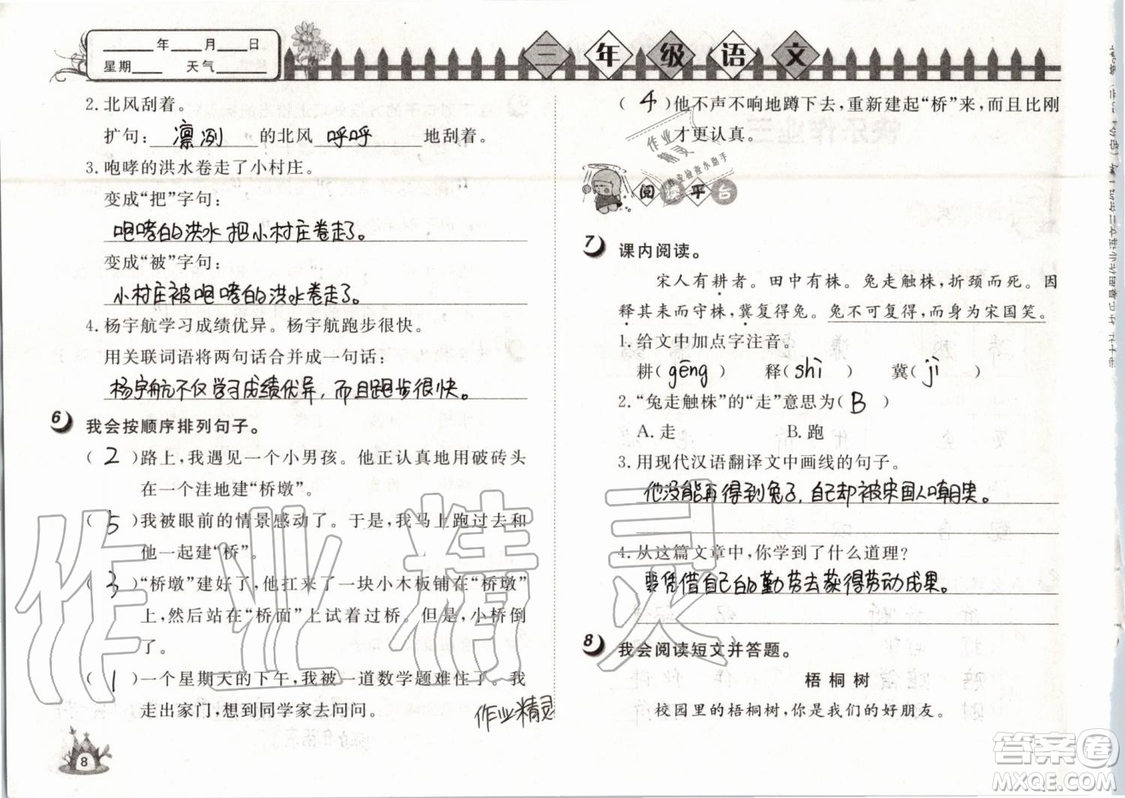 ____年__月__日
星期____ 天气________
三年级语文
2. 北风刮着。
扩句：凛冽的北风呼呼地刮着。
3. 咆哮的洪水卷走了小村庄。
变成“把”字句：
咆哮的洪水把小村庄卷走了。
变成“被”字句：
小村庄被咆哮的洪水卷走了。
4. 杨宇航学习成绩优异。杨宇航跑步很快。
用关联词语将两句话合并成一句话：
杨宇航不仅学习成绩优异，而且跑步很快。
6 我会按顺序排列句子。
（2）路上，我遇见一个小男孩。他正认真地用破砖头
在一个洼地建“桥墩”。
（5）我被眼前的情景感动了。于是，我马上跑过去和
他一起建“桥”。
（3）“桥墩”建好了，他扛来了一块小木板铺在“桥墩”
上，然后站在“桥面”上试着过桥。但是，小桥倒
了。
（1）一个星期天的下午，我被一道数学题难住了。我
走出家门，想到同学家去问问。
作业精灵
8
（4）他不声不响地蹲下去，重新建起“桥”来，而且比刚
才更认真。
作业
精灵
阅读平台
7 课内阅读。
宋人有耕者。田中有株。兔走触株，折颈而死。因
释其耒而守株，冀复得兔。兔不可复得，而身为宋国笑。
1. 给文中加点字注音。
耕（gēng） 释（shì） 冀（jì）
2. “兔走触株”的“走”意思为（B）
A. 走 B. 跑
3. 用现代汉语翻译文中画线的句子。
他没能再得到兔子，自己却被宋国人嘲笑。
4. 从这篇文章中，你学到了什么道理？
要凭借自己的勤劳去获得劳动成果。
8 我会阅读短文并答题。
梧桐树
校园里的梧桐树，你是我们的好朋友。
作业精灵
答案圈
MXQE.COM